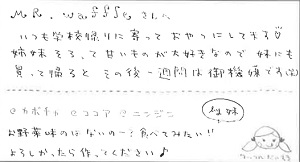 MR. waffle さんへ
いつも学校帰りに寄って おやつにしてます♡
姉妹そろって甘いものが大好きなので 妹にも
買って帰ると その後一週間は御機嫌です(笑)
@カボチャ @ココア @ニンジン
お野菜味のはないの〜?食べてみたい!!
よろしかったら作ってください♪